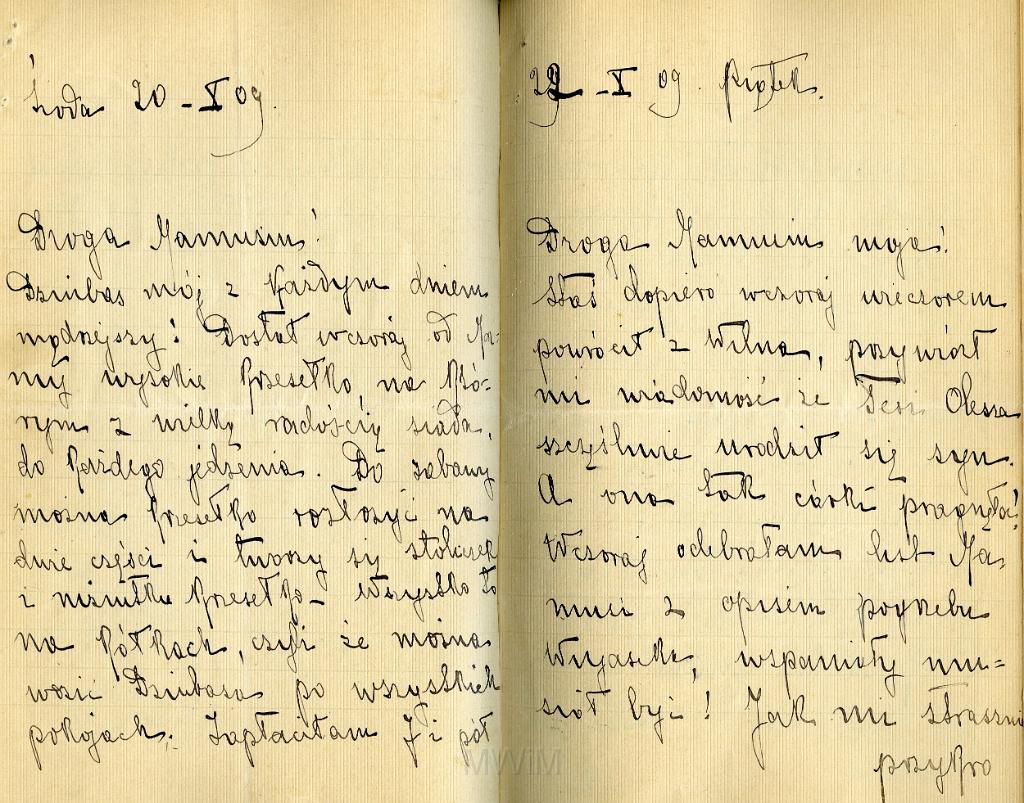 Środa 20-X 09.
Droga Mamusiu!
Dziubas mój z każdym dniem
mądrzejszy! Dostał wczoraj od Ma-
my wysokie krzesełko, na któ-
rym z wielką radością siada,
do każdego jedzenia. Do zabawy
można krzesełko rozłożyć na
dwie części i tworzy się stoliczek
i niziutkie krzesełko - Wszystko to
na kółkach, czyli że można
wozić Dziubasa po wszystkich
pokojach. Zapłaciłam 7 i pół
22-X 09. Piątek.
Droga Mamusiu moja!
Staś dopiero wczoraj wieczorem
powrócił z Wilna, przywiózł
mi wiadomość że Olesza
szczęśliwie urodził się syn.
A ona tak córki pragnęła!
Wczoraj odebrałam list Ma-
musi z opisem pogrzebu
Wujaszka, wspaniały mu-
siał być! Jak mi strasznie
przykro
MWiM